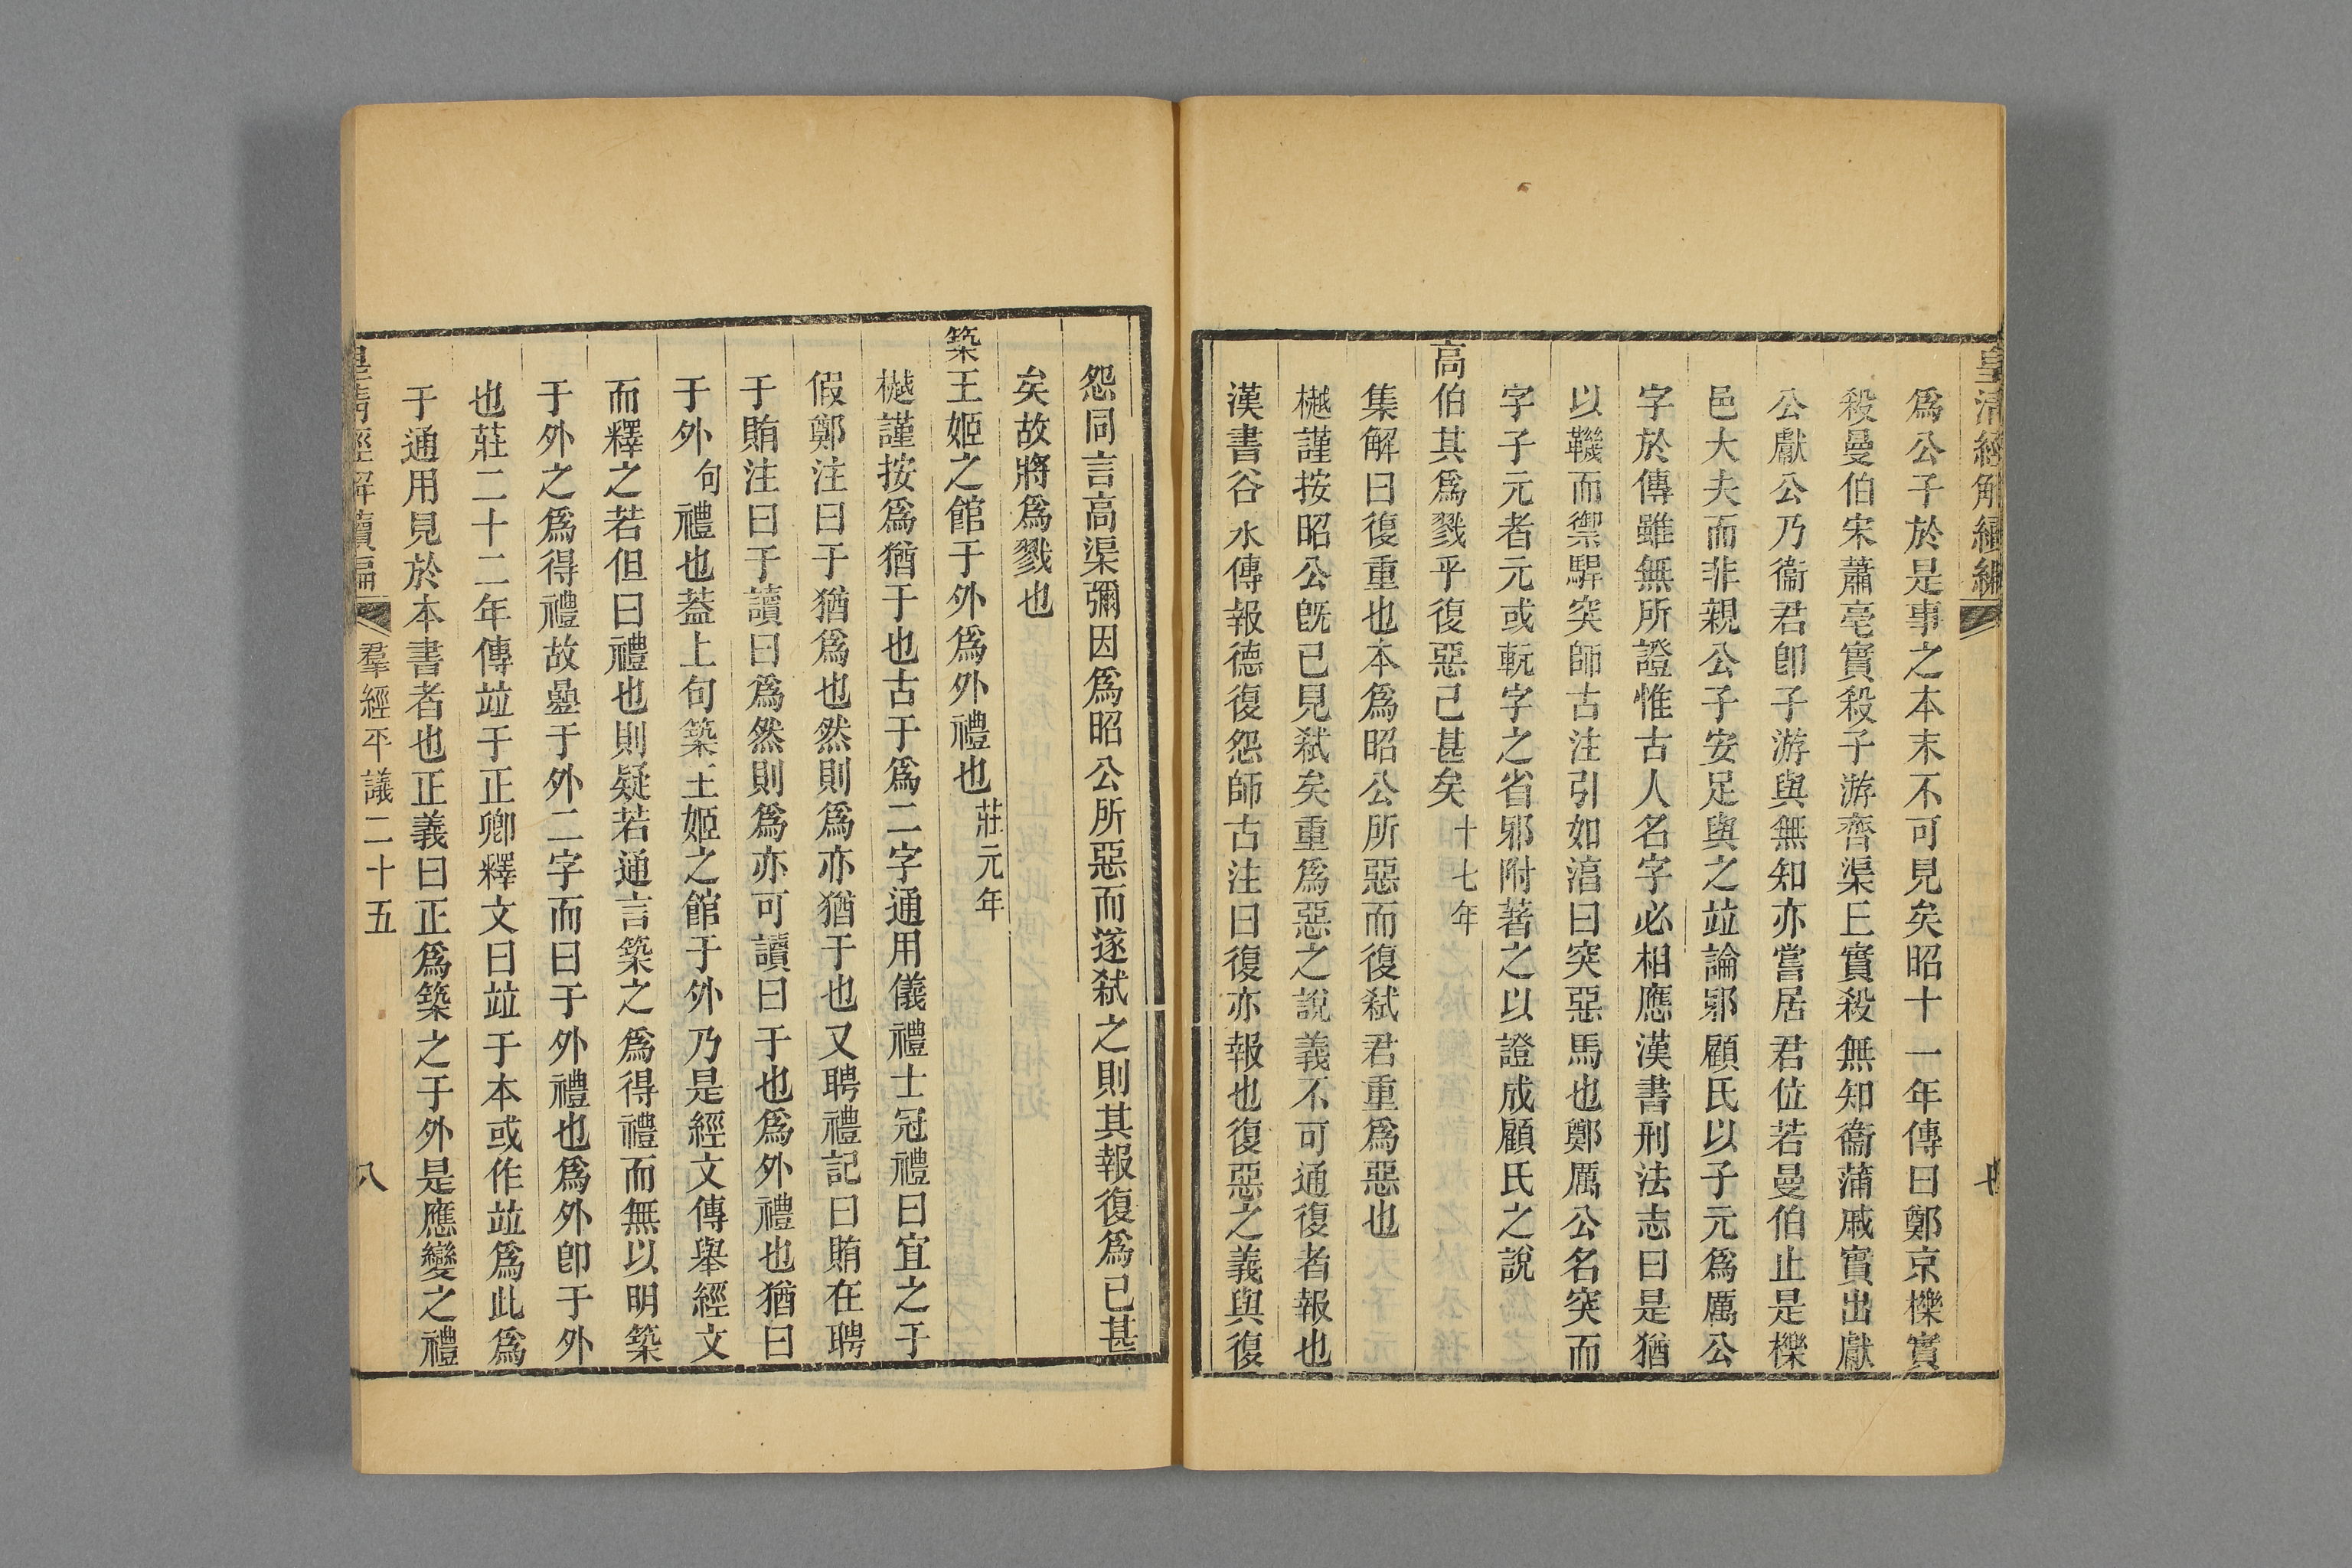 皇清經解續編
爲公子於是事之本末不可見矣昭十一年傳曰鄭京櫟實
殺曼伯宋蕭亳實殺子游齊渠丘實殺無知衞蒲戚實出獻
公獻公乃衞君卽子游與無知亦嘗居君位若曼伯止是櫟
邑大夫而非親公子安足與之竝論邪顧氏以子元爲厲公
字於傳雖無所證惟古人名字必相應漢書刑法志曰是猶
以鞿而禦駻突師古注引如淳曰突惡馬也鄭厲公名突而
字子元者元或䡇字之省邪附著之以證成顧氏之說
高伯其爲戮乎復惡己甚矣十七年
集解曰復重也本爲昭公所惡而復弑君重爲惡也
樾謹按昭公旣已見弑矣重爲惡之說義不可通復者報也
漢書谷永傳報德復怨師古注曰復亦報也復惡之義與復
怨同言高渠彌因爲昭公所惡而遂弑之則其報復爲已甚
矣故將爲戮也
築王姬之館于外爲外禮也莊元年
樾謹按爲猶于也古于爲二字通用儀禮士冠禮曰宜之于
假鄭注曰于猶爲也然則爲亦猶于也又聘禮記曰賄在聘
于賄注曰于讀曰爲然則爲亦可讀曰于也爲外禮也猶曰
于外句禮也葢上句築王姬之館于外乃是經文傳舉經文
而釋之若但曰禮也則疑若通言築之爲得禮而無以明築
于外之爲得禮故曡于外二字而曰于外禮也爲外卽于外
也莊二十二年傳竝于正卿釋文曰竝于本或作竝爲此爲
于通用見於本書者也正義曰正爲築之于外是應變之禮
皇淸經解續編 羣經平議二十五 八